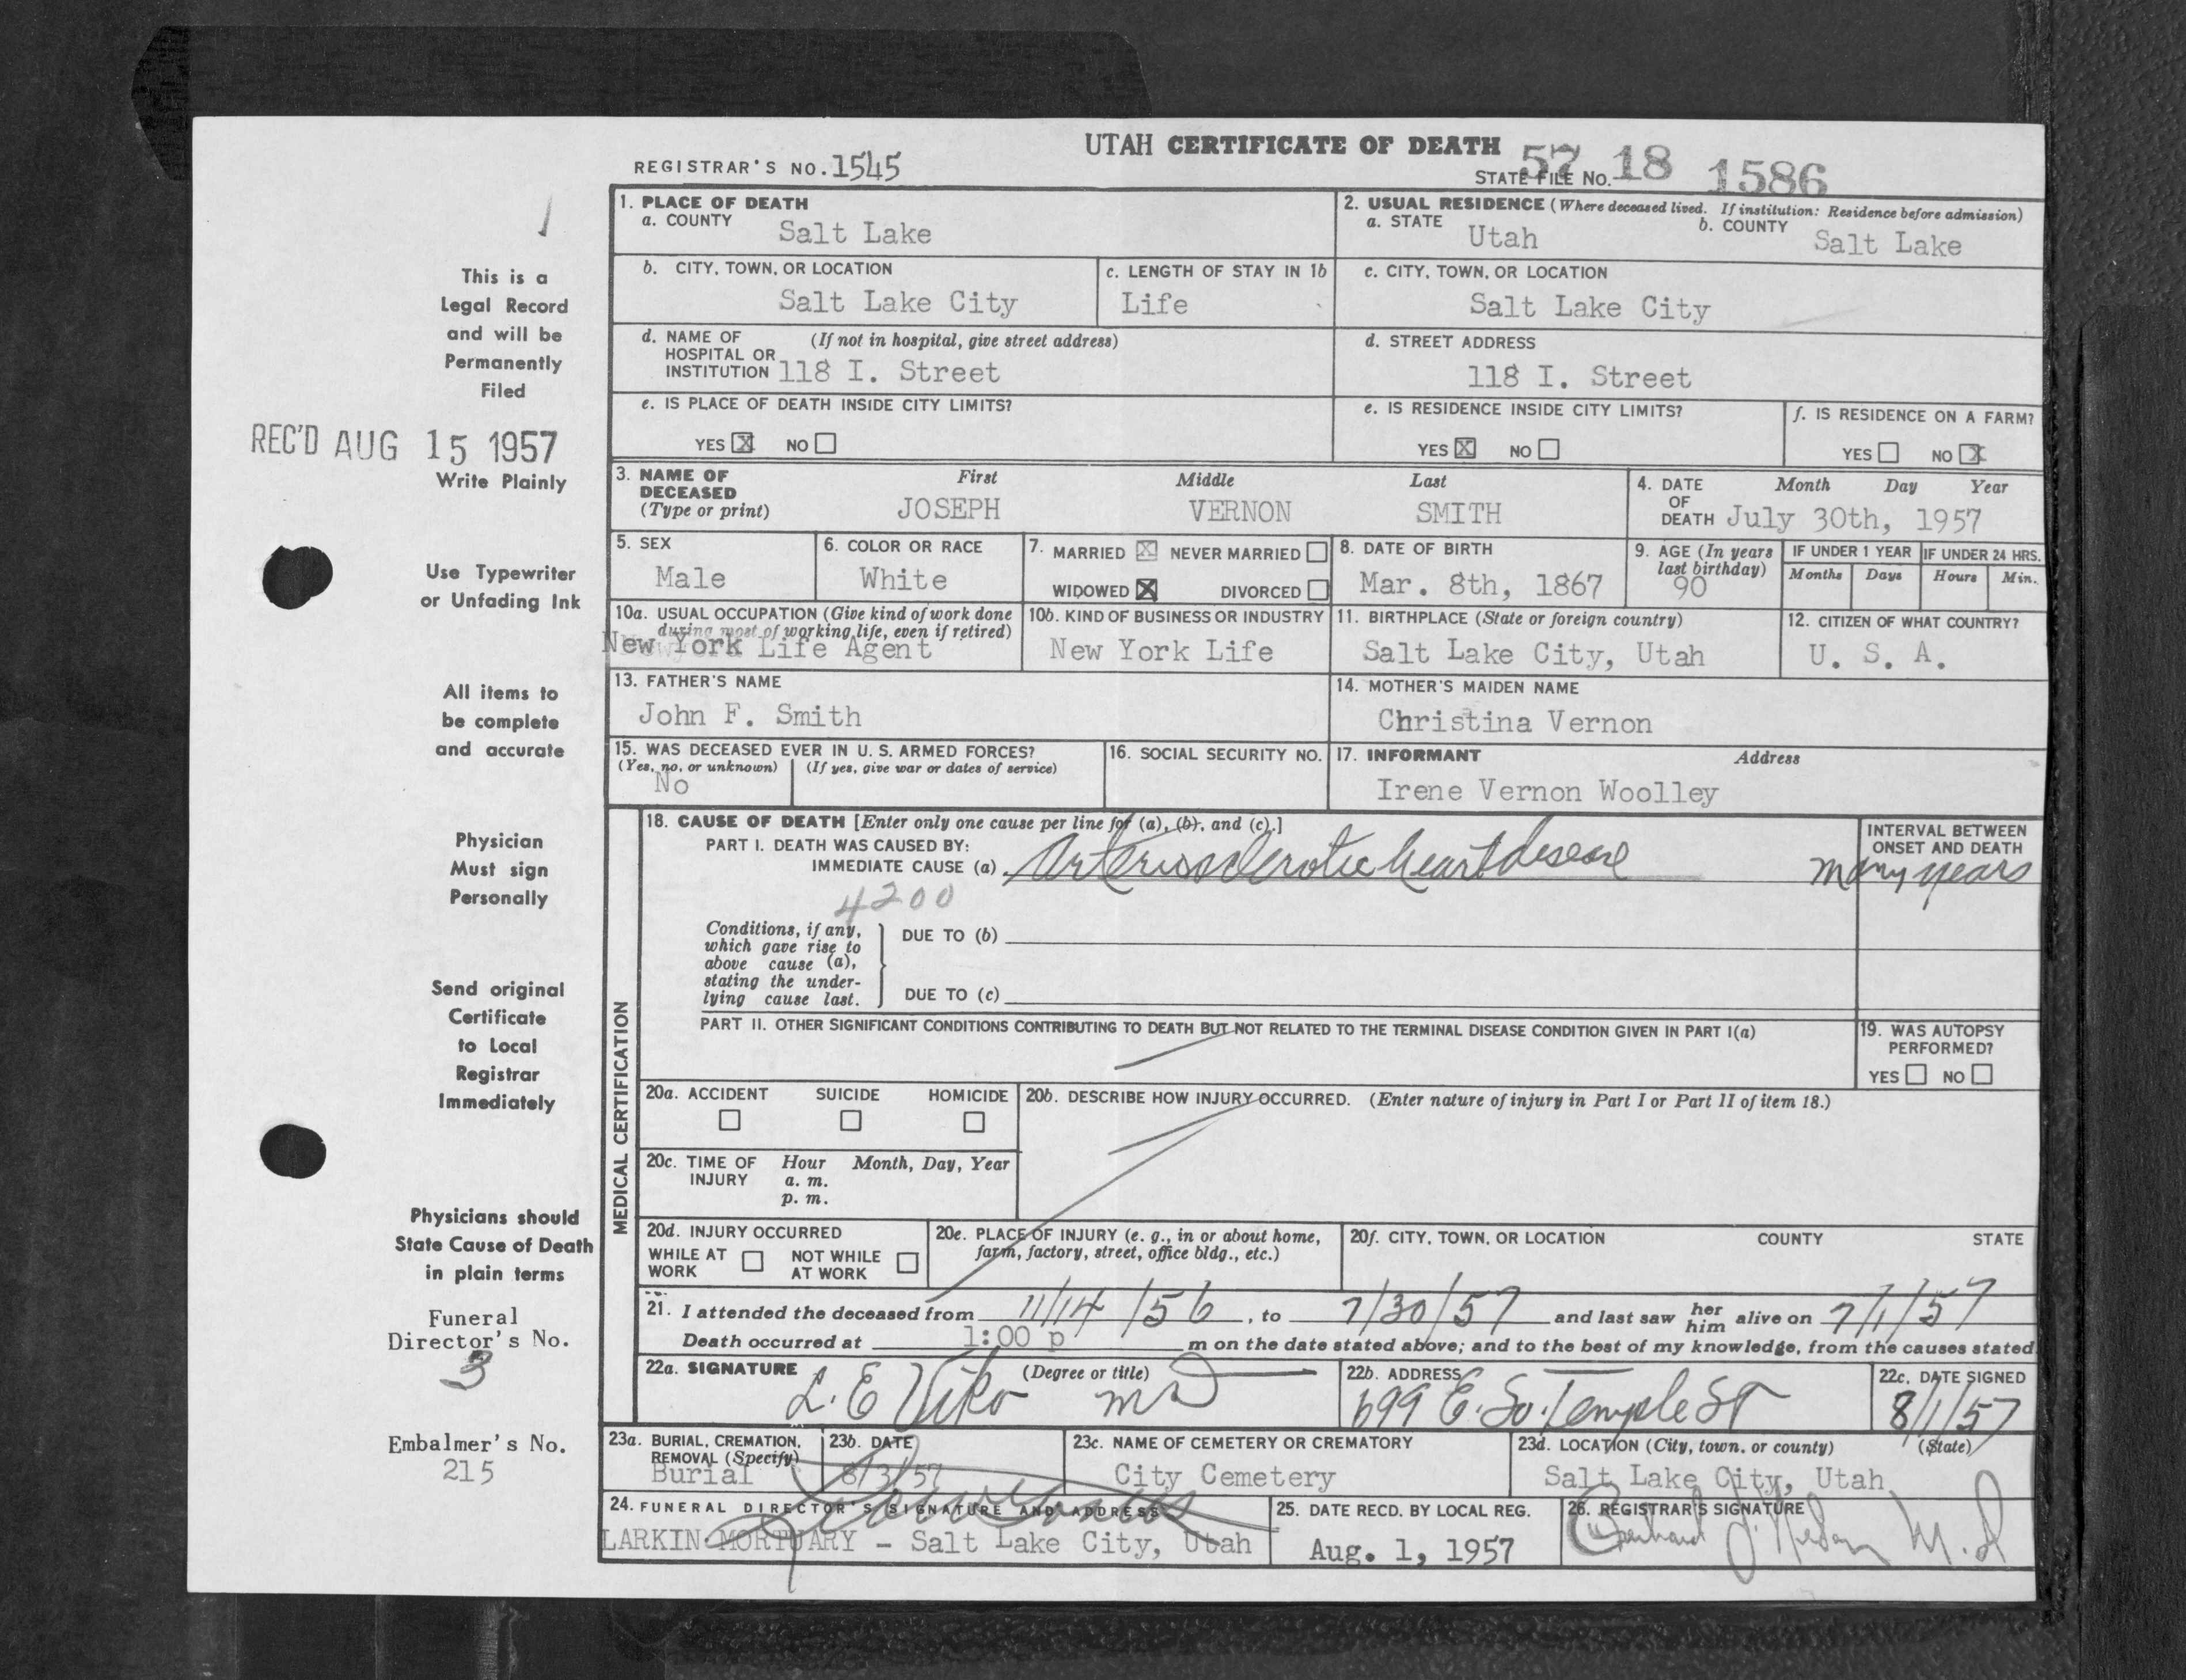 UTAH CERTIFICATE OF DEATH
REGISTRAR'S NO. 1545
STATE FILE NO. 57 18 1586
1. PLACE OF DEATH
a. COUNTY Salt Lake
2. USUAL RESIDENCE (Where deceased lived. If institution: Residence before admission)
a. STATE Utah b. COUNTY Salt Lake
b. CITY, TOWN, OR LOCATION Salt Lake City
c. LENGTH OF STAY IN 1b Life
c. CITY, TOWN, OR LOCATION Salt Lake City
d. NAME OF HOSPITAL OR INSTITUTION (If not in hospital, give street address) 118 I. Street
d. STREET ADDRESS 118 I. Street
e. IS PLACE OF DEATH INSIDE CITY LIMITS?
YES X NO
e. IS RESIDENCE INSIDE CITY LIMITS?
YES X NO
f. IS RESIDENCE ON A FARM?
YES NO X
3. NAME OF DECEASED (Type or print)
First Middle Last
JOSEPH VERNON SMITH
4. DATE OF DEATH Month Day Year
July 30th, 1957
5. SEX Male
6. COLOR OR RACE White
7. MARRIED X NEVER MARRIED
WIDOWED X DIVORCED
8. DATE OF BIRTH Mar. 8th, 1867
9. AGE (In years last birthday) 90
IF UNDER 1 YEAR Months Days
IF UNDER 24 HRS. Hours Min.
10a. USUAL OCCUPATION (Give kind of work done during most of working life, even if retired)
New York Life Agent
10b. KIND OF BUSINESS OR INDUSTRY
New York Life
11. BIRTHPLACE (State or foreign country)
Salt Lake City, Utah
12. CITIZEN OF WHAT COUNTRY?
U. S. A.
13. FATHER'S NAME
John F. Smith
14. MOTHER'S MAIDEN NAME
Christina Vernon
15. WAS DECEASED EVER IN U. S. ARMED FORCES?
(Yes, no, or unknown) (If yes, give war or dates of service)
No
16. SOCIAL SECURITY NO.
17. INFORMANT Address
Irene Vernon Woolley
MEDICAL CERTIFICATION
18. CAUSE OF DEATH [Enter only one cause per line for (a), (b), and (c).]
PART I. DEATH WAS CAUSED BY:
IMMEDIATE CAUSE (a) Arteriosclerotic heart disease
4200
INTERVAL BETWEEN ONSET AND DEATH
many years
Conditions, if any, which gave rise to above cause (a), stating the underlying cause last.
DUE TO (b)
DUE TO (c)
PART II. OTHER SIGNIFICANT CONDITIONS CONTRIBUTING TO DEATH BUT NOT RELATED TO THE TERMINAL DISEASE CONDITION GIVEN IN PART I(a)
19. WAS AUTOPSY PERFORMED?
YES NO
20a. ACCIDENT SUICIDE HOMICIDE
20b. DESCRIBE HOW INJURY OCCURRED. (Enter nature of injury in Part I or Part II of item 18.)
20c. TIME OF INJURY Hour a. m. p. m. Month, Day, Year
20d. INJURY OCCURRED
WHILE AT WORK NOT WHILE AT WORK
20e. PLACE OF INJURY (e. g., in or about home, farm, factory, street, office bldg., etc.)
20f. CITY, TOWN, OR LOCATION COUNTY STATE
21. I attended the deceased from 11/14/56, to 7/30/57 and last saw her him alive on 7/1/57
Death occurred at 1:00 p m on the date stated above; and to the best of my knowledge, from the causes stated.
22a. SIGNATURE (Degree or title)
L. E. Viko MD
22b. ADDRESS
699 E. So. Temple St
22c. DATE SIGNED
8/1/57
23a. BURIAL, CREMATION, REMOVAL (Specify)
Burial
23b. DATE
8/3/57
23c. NAME OF CEMETERY OR CREMATORY
City Cemetery
23d. LOCATION (City, town, or county) (State)
Salt Lake City, Utah
24. FUNERAL DIRECTOR'S SIGNATURE AND ADDRESS
LARKIN MORTUARY - Salt Lake City, Utah
25. DATE RECD. BY LOCAL REG.
Aug. 1, 1957
26. REGISTRAR'S SIGNATURE
M.D
This is a
Legal Record
and will be
Permanently
Filed
REC'D AUG 15 1957
Write Plainly
Use Typewriter
or Unfading Ink
All items to
be complete
and accurate
Physician
Must sign
Personally
Send original
Certificate
to Local
Registrar
Immediately
Physicians should
State Cause of Death
in plain terms
Funeral
Director's No.
3
Embalmer's No.
215